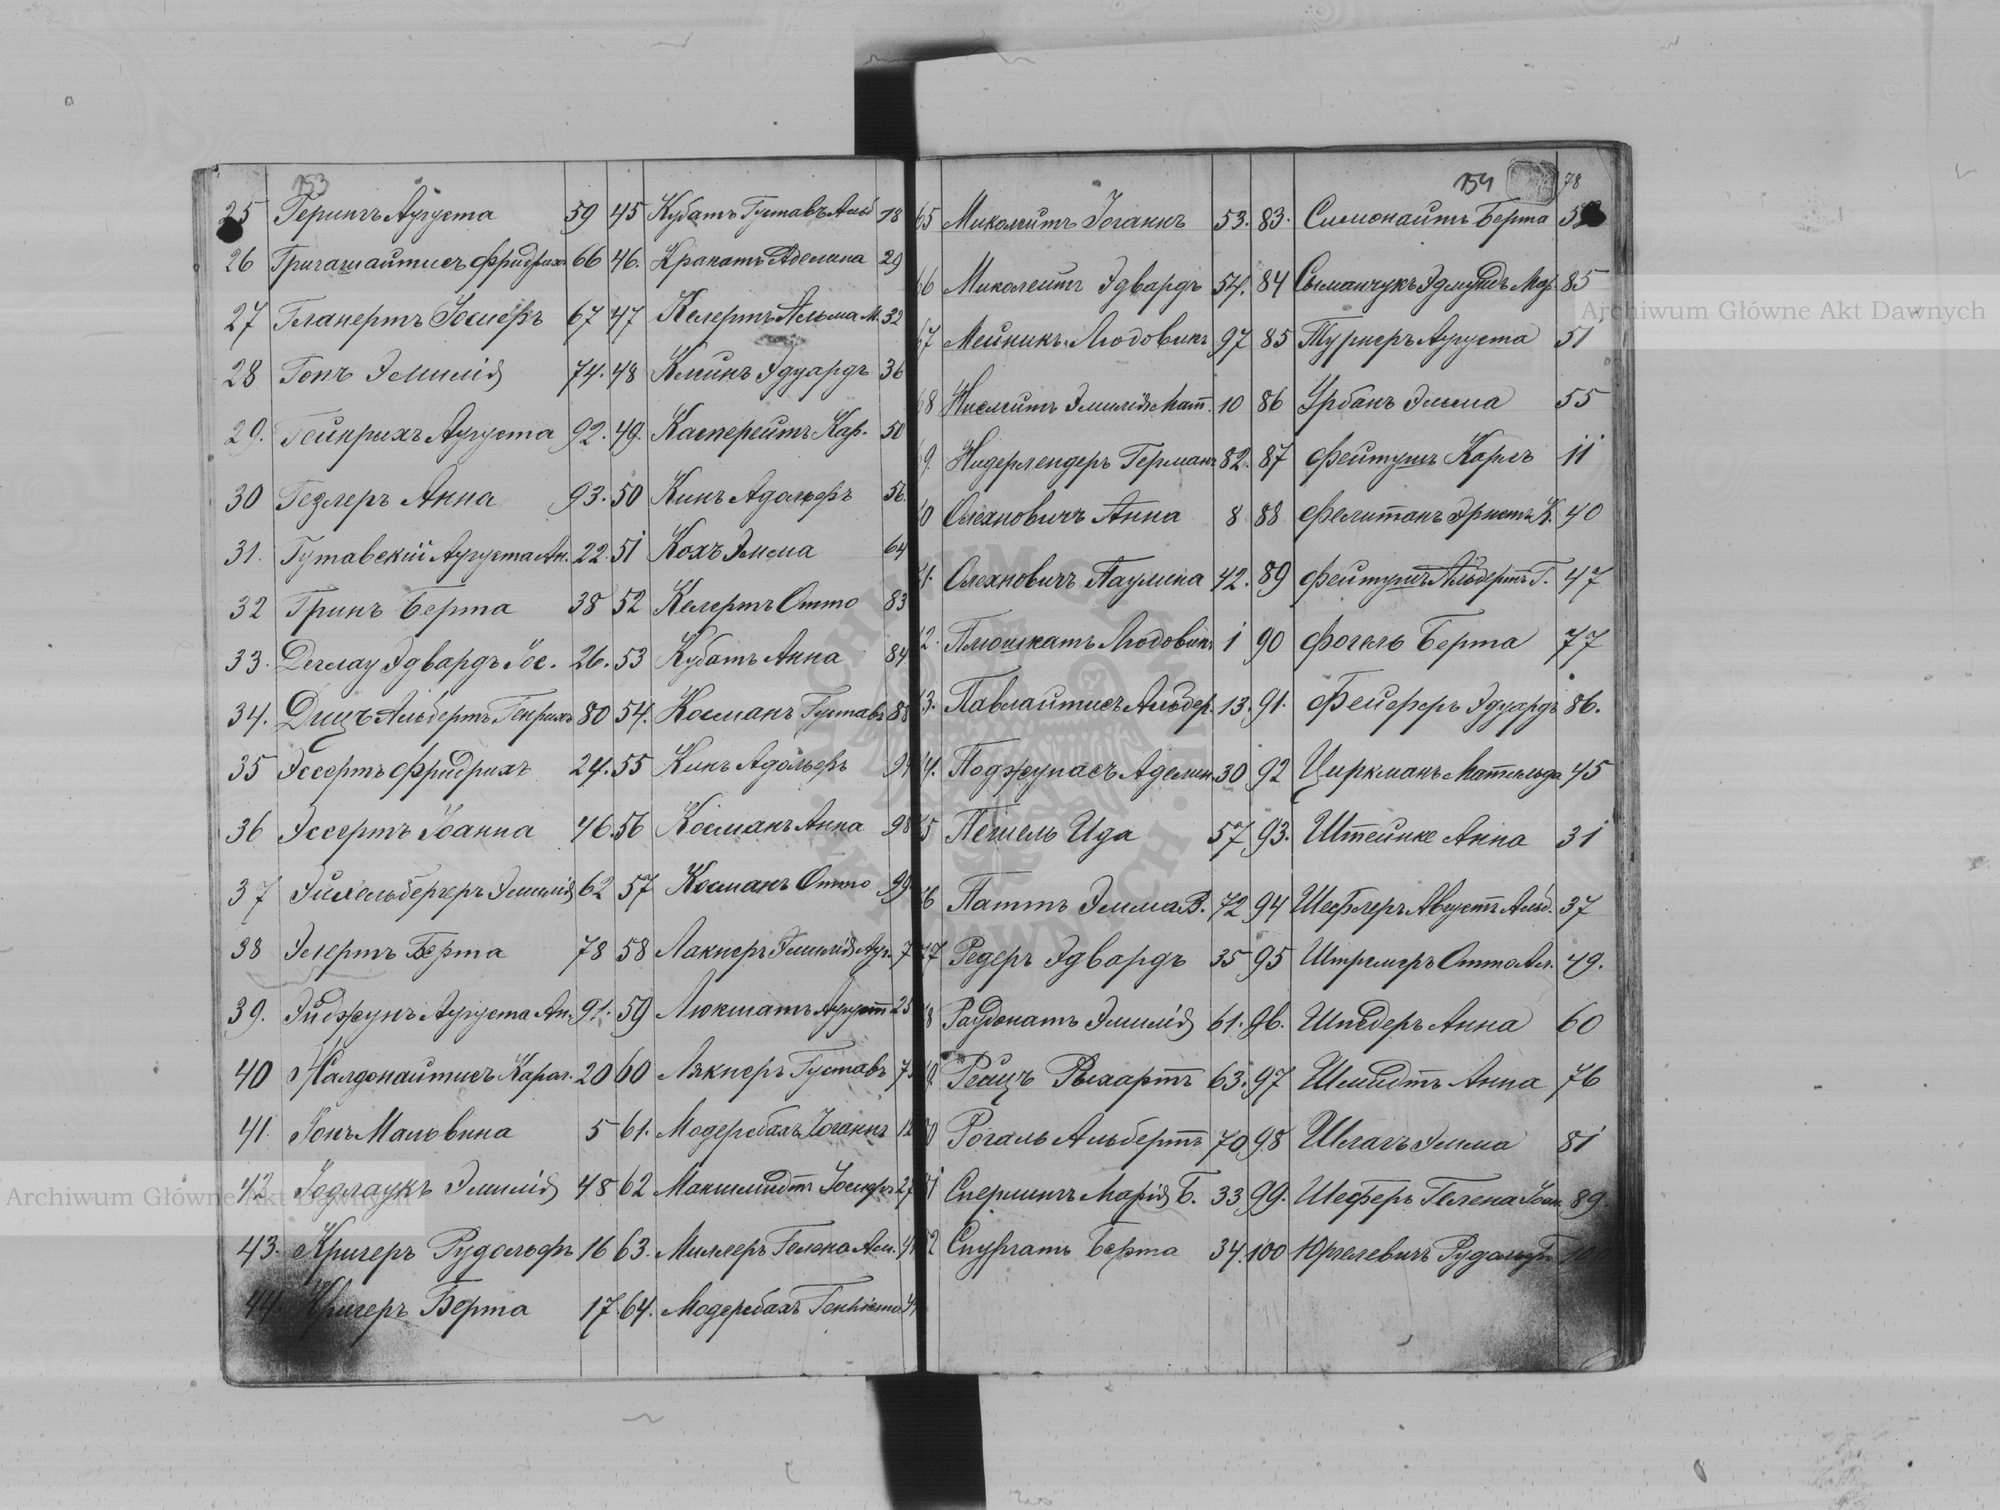 153
25 Герингъ Аугуста 59
26 Григашайтисъ Фридрихъ 66
27 Гланертъ Іосифъ 67
28 Гопъ Эмилія 74.
29. Гейнрихъ Аугуста 92.
30 Гезлеръ Анна 93.
31. Гутавскій Аугуста Ан. 22.
32 Гринъ Берта 38
33. Деглау Эдвардъ Іос. 26.
34. Дицъ Альбертъ Генрихъ 80
35 Эссертъ Фридрихъ 24.
36 Эссертъ Іоанна 46.
37 Эйхельбергеръ Эмилія 62
38 Элертъ Берта 78
39. Эйджунъ Аугуста Ан. 91.
40 Жалдонайтисъ Карол. 20
41. Іонъ Мальвина 5
42 Іодлаукъ Эмилія 48
43. Кригеръ Рудольфъ 16
44. Кригеръ Берта 17.
45 Кубатъ Густавъ Альб 18
46. Крапатъ Аделина 29
47 Келертъ Альма М. 32
48 Клинъ Эдуардъ 36
49. Касперейтъ Кар. 50
50 Кинъ Адольфъ 56.
51 Кохъ Эмма 64
52 Келертъ Отто 83
53 Кубатъ Анна 84
54. Косманъ Густавъ 88
55 Кинъ Адольфъ
56 Косманъ Анна 98
57 Косманъ Отто 99
58 Лакнеръ Эмилія Ауг. 7
59 Люкшатъ Аугустъ 25
60 Лякнеръ Густавъ
61. Модерсбахъ Іоганнъ
62 Макшмидтъ Іосифъ 27
63. Миллеръ Гелена Ам.
64. Модерсбахъ
154 78
65 Миколейтъ Іоганнъ 53.
66 Миколейтъ Эдвардъ 54.
67 Мейникъ Людовикъ 97
68 Нислейтъ Эмилія Мат. 10
69. Нидерлендеръ Германъ 82.
70 Олехновичъ Анна 8
71. Олехновичъ Паулина 42.
72. Плюшкатъ Людовикъ 1
73. Павлайтисъ Альбер. 13.
74. Поджунасъ Аделин 30
75 Пешель Ида 57
76 Паттъ Эмма В. 72
77 Редеръ Эдвардъ 35
78 Раудонатъ Эмилія 61.
79. Рейцъ Рыхартъ 63.
80 Рогаль Альбертъ 70
81 Сперлингъ Марія Б. 33
82 Спургатъ Берта 34.
83. Симонайтъ Берта
84 Сыманчукъ Эдмундъ Мар. 85
85 Турнеръ Аугуста 51
86 Урбанъ Эмма 55
87 Фейтушъ Карлъ 11
88 Фелитанъ Эрнстъ К. 40
89 Фейтушъ Альбертъ Г. 47
90 Фогель Берта 77
91. Фейферъ Эдуардъ 86.
92 Циркманъ Матильда 45
93. Штейнке Анна 31
94 Шефлеръ Августъ Альб. 37
95 Штремеръ Отто Ал. 49.
96. Шнедеръ Анна 60
97 Шмидтъ Анна 76
98 Шлагъ Эмма 81
99. Шеферъ Гелена Іоан. 89
100 Юргелевичъ Рудольфъ 100
Archiwum Główne Akt Dawnych
Archiwum Główne Akt Dawnych